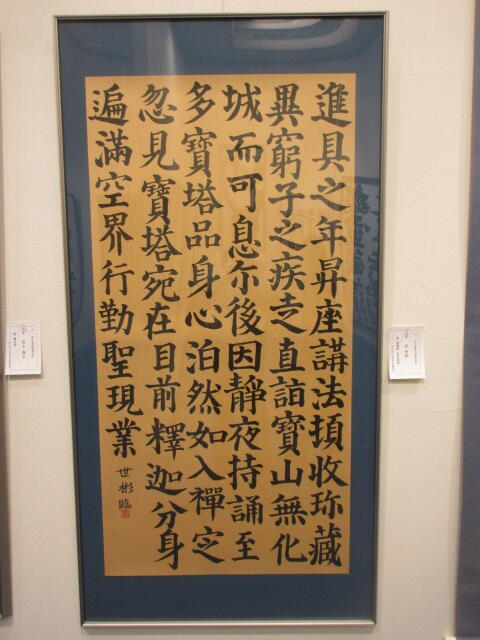 進具之年昇座講法頓收珎藏
異窮子之疾走直詣寶山無化
城而可息尓後因靜夜持誦至
多寶塔品身心泊然如入禪定
忽見寶塔宛在目前釋迦分身
遍滿空界行勤聖現業
世彬臨